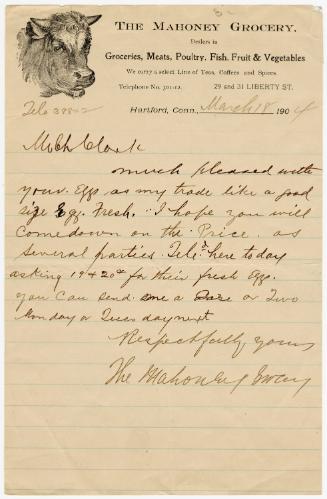 THE MAHONEY GROCERY,
Dealers in
Groceries, Meats, Poultry, Fish, Fruit & Vegetables
We carry a select Line of Teas, Coffees and Spices.
Telephone No. 301-12. 29 and 31 LIBERTY ST.
Tele 378-2
Hartford, Conn., March 18 1904
Clark
much pleased with
your Eggs as my trade like a good
size Egg. Fresh. I hope you will
come down on the Price. as
several parties Tele. here to day
asking 19 & 20¢ for their fresh Eggs.
you can send me a Case or Two
Monday or Tuesday next
Respectfully yours
The Mahoney Grocery